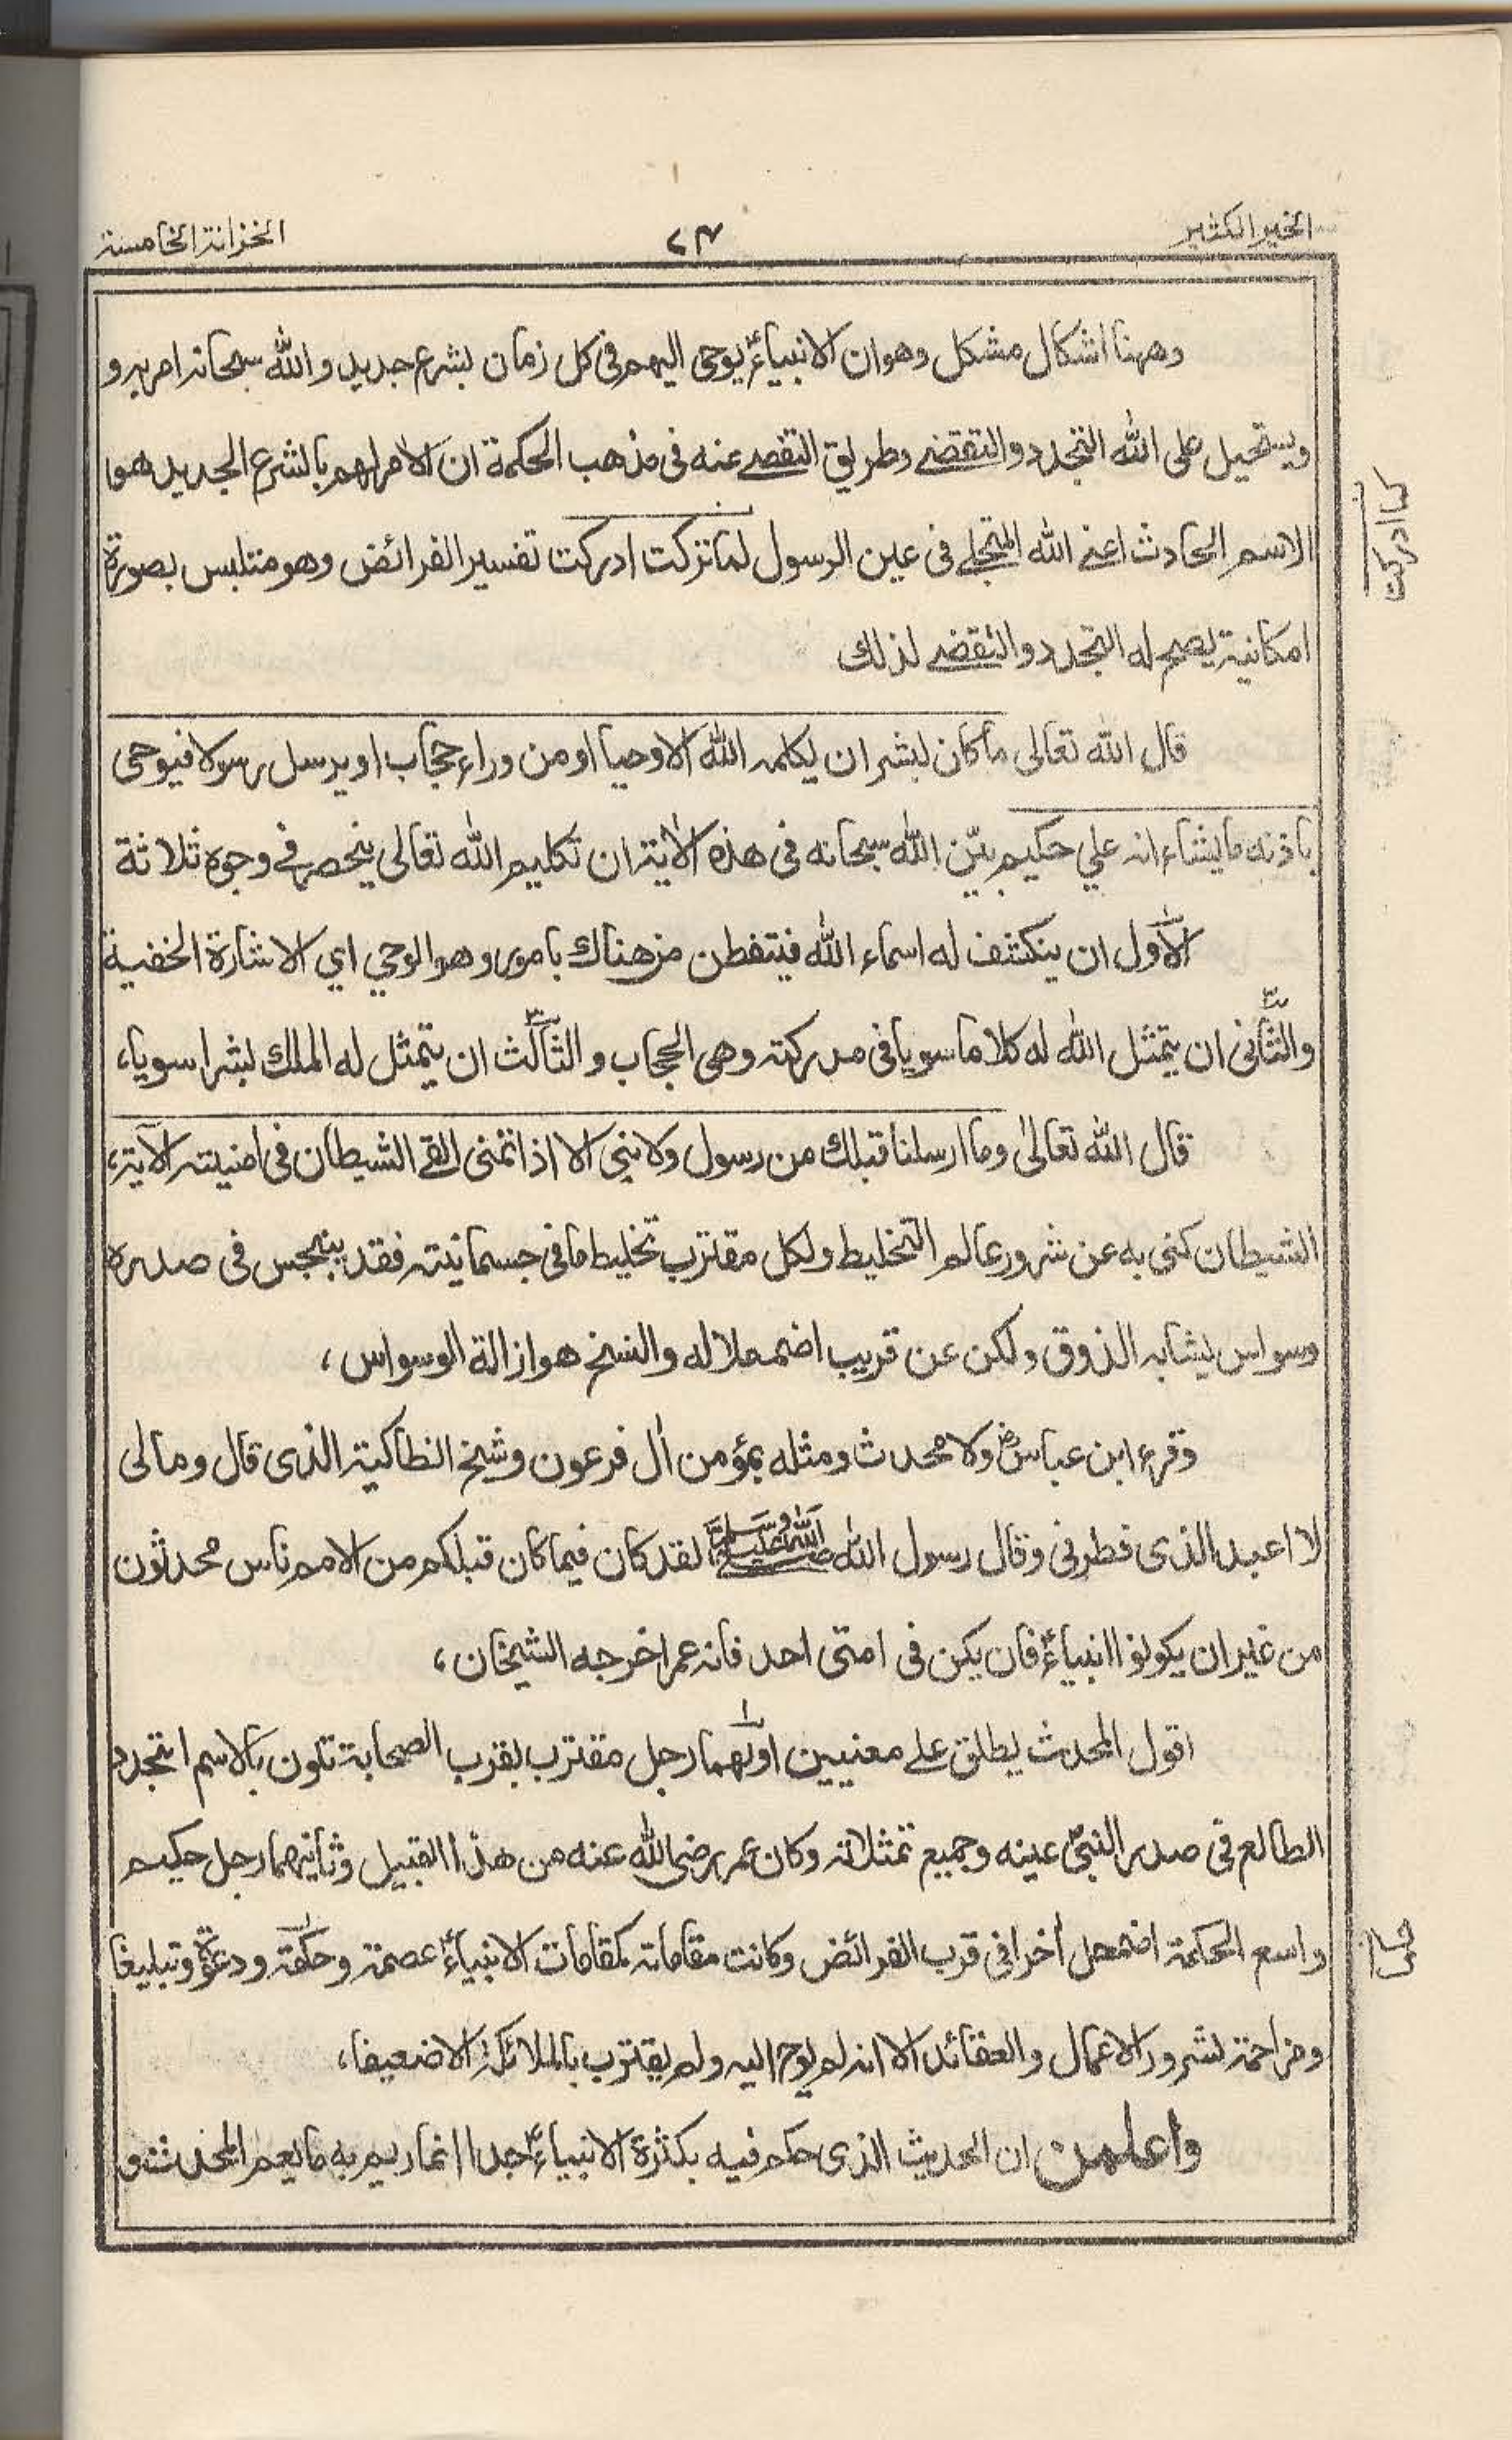 الخير الكثير
٧٤
الخزانة الخامسة
وههنا اشكال مشكل وهو ان الانبياءؑ يوحى اليهم فى كل زمان بشرع جديد والله سبحانه امر به و
ويستحيل على الله التجدد والتقضے وطريق التقصے عنه فى مذهب الحكمة ان الامر لهم بالشرع الجديد هموا
الاسم الحادث اعنے الله المتجلے فى عين الرسول لما تركت ادركت تفسير الفرائض وهو متلبس بصورة
امكانية يصح له التجدد والتقضے لذلك
قال الله تعالى ما كان لبشر ان يكلمه الله الا وحيا او من وراء حجاب او يرسل رسولا فيوحى
باذنه ما يشاء انه علي حكيم بيّن الله سبحانه فى هذه الاٰية ان تكليم الله تعالى ينحصر فے وجوه ثلاثة
الاول ان ينكشف له اسماء الله فيتفطن من هناك بامور وهو الوحي اي الاشارة الخفية
والثانى ان يتمثل الله له كلاما سويا فى مدركته وهى الحجاب والثالث ان يتمثل له الملك بشرا سويا،
قال الله تعالىٰ وما ارسلنا قبلك من رسول ولا نبى الا اذا تمنى القے الشيطان فى امنيته الآية،
الشيطان كنى به عن شرور عالم التخليط ولكل مقترب تخليط ما فى جسمانيته فقد ينبجس فى صدره
وسواس يشابه الذوق ولكن عن قريب اضمحلاله والنسخ هو ازالة الوسواس،
وقرء ابن عباسؓ ولا محدث ومثله بمؤمن اٰل فرعون وشيخ انطاكية الذى قال ومالى
لا اعبد الذى فطرنى وقال رسول الله صلى الله عليه وسلم لقد كان فيما كان قبلكم من الامم ناس محدثون
من غير ان يكونوا انبياءؑ فان يكن فى امتى احد فانه عمر اخرجه الشيخان،
اقول المحدث يطلق علے معنيين اولهما رجل مقترب بقرب الصحابة تلون بالاسم المتجدد
الطالع فى صدر النبىؐ عينه وجميع تمثلاته وكان عمر رضى الله عنه من هذا القبيل وثانيهما رجل حكيم
واسع الحكمة اضمحل اٰخرا فى قرب الفرائض وكانت مقاماته كمقامات الانبياءؑ عصمة وحكمة ودعوة وتبليغا
ومزاحمة لشرور الاعمال والعقائد الا انه لم يوح اليه ولم يقترب بالملائكة الا ضعيفا،
واعلمن ان الحديث الذى حكم فيه بكثرة الانبياءؑ جدا انما يريد به ما يعم المحدث و